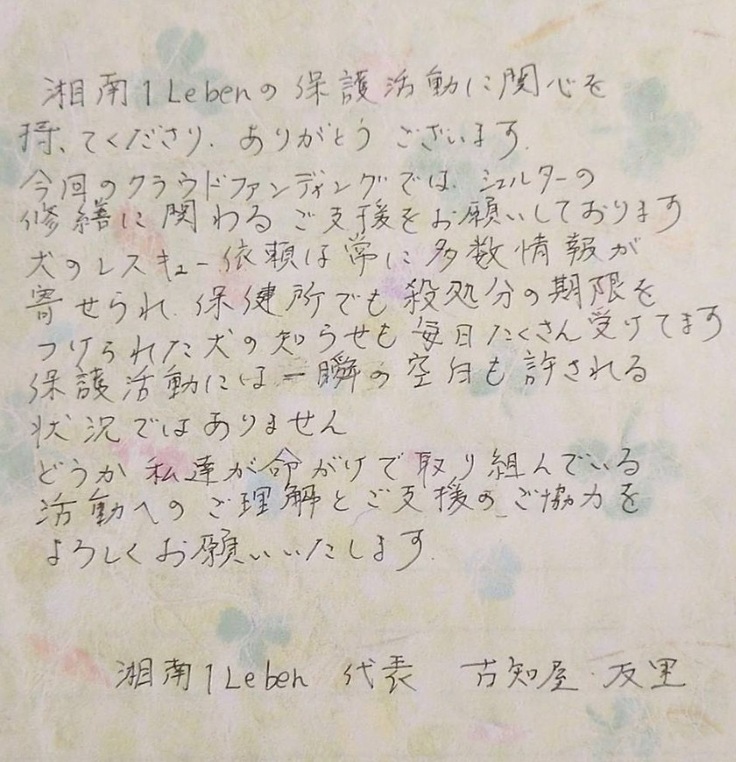 湘南1Lebenの保護活動に関心を
持ってくださり、ありがとうございます。
今回のクラウドファンディングでは、シェルターの
修繕に関わるご支援をお願いしております
犬のレスキュー依頼は常に多数情報が
寄せられ、保健所でも殺処分の期限を
つけられた犬の知らせも毎日たくさん受けてます
保護活動には一瞬の空白も許される
状況ではありません
どうか私達が命がけで取り組んでいる
活動へのご理解とご支援の、ご協力を
よろしくお願いいたします。
湘南1Leben 代表 古知屋 友里